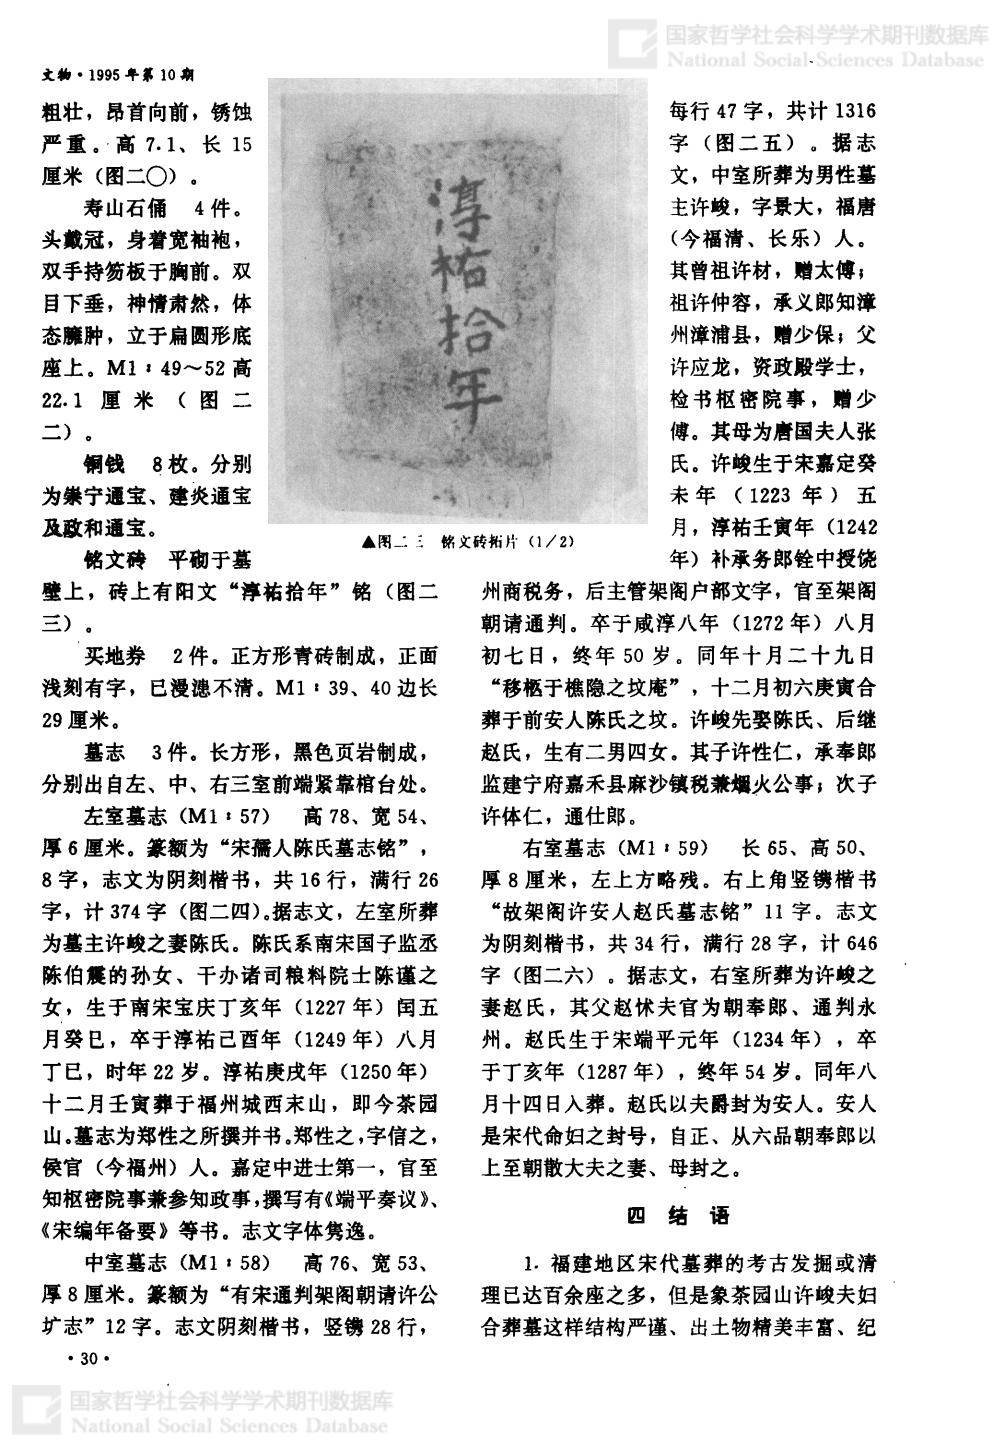 国家哲学社会科学学术期刊数据库
National Social Sciences Database
文物·1995年第10期
粗壮，昂首向前，锈蚀
严重。高7.1、长15
厘米（图二〇）。
寿山石俑 4件。
头戴冠，身着宽袖袍，
双手持笏板于胸前。双
目下垂，神情肃然，体
态臃肿，立于扁圆形底
座上。M1：49～52高
22.1厘米（图二
二）。
铜钱 8枚。分别
为崇宁通宝、建炎通宝
及政和通宝。
铭文砖 平砌于墓
壁上，砖上有阳文“淳祐拾年”铭（图二
三）。
买地券 2件。正方形青砖制成，正面
浅刻有字，已漫漶不清。M1：39、40边长
29厘米。
墓志 3件。长方形，黑色页岩制成，
分别出自左、中、右三室前端紧靠棺台处。
左室墓志（M1：57） 高78、宽54、
厚6厘米。篆额为“宋孺人陈氏墓志铭”，
8字，志文为阴刻楷书，共16行，满行26
字，计374字（图二四）。据志文，左室所葬
为墓主许峻之妻陈氏。陈氏系南宋国子监丞
陈伯震的孙女、干办诸司粮料院士陈谨之
女，生于南宋宝庆丁亥年（1227年）闰五
月癸巳，卒于淳祐己酉年（1249年）八月
丁已，时年22岁。淳祐庚戌年（1250年）
十二月壬寅葬于福州城西末山，即今茶园
山。墓志为郑性之所撰并书。郑性之，字信之，
侯官（今福州）人。嘉定中进士第一，官至
知枢密院事兼参知政事，撰写有《端平奏议》、
《宋编年备要》等书。志文字体隽逸。
中室墓志（M1：58） 高76、宽53、
厚8厘米。篆额为“有宋通判架阁朝请许公
圹志”12字。志文阴刻楷书，竖镌28行，
淳祐拾年
▲图二三 铭文砖拓片（1/2）
每行47字，共计1316
字（图二五）。据志
文，中室所葬为男性墓
主许峻，字景大，福唐
（今福清、长乐）人。
其曾祖许材，赠太傅；
祖许仲容，承义郎知漳
州漳浦县，赠少保；父
许应龙，资政殿学士，
检书枢密院事，赠少
傅。其母为唐国夫人张
氏。许峻生于宋嘉定癸
未年（1223年）五
月，淳祐壬寅年（1242
年）补承务郎铨中授饶
州商税务，后主管架阁户部文字，官至架阁
朝请通判。卒于咸淳八年（1272年）八月
初七日，终年50岁。同年十月二十九日
“移柩于樵隐之坟庵”，十二月初六庚寅合
葬于前安人陈氏之坟。许峻先娶陈氏、后继
赵氏，生有二男四女。其子许性仁，承奉郎
监建宁府嘉禾县麻沙镇税兼烟火公事；次子
许体仁，通仕郎。
右室墓志（M1：59） 长65、高50、
厚8厘米，左上方略残。右上角竖镌楷书
“故架阁许安人赵氏墓志铭”11字。志文
为阴刻楷书，共34行，满行28字，计646
字（图二六）。据志文，右室所葬为许峻之
妻赵氏，其父赵怵夫官为朝奉郎、通判永
州。赵氏生于宋端平元年（1234年），卒
于丁亥年（1287年），终年54岁。同年八
月十四日入葬。赵氏以夫爵封为安人。安人
是宋代命妇之封号，自正、从六品朝奉郎以
上至朝散大夫之妻、母封之。
四 结 语
1. 福建地区宋代墓葬的考古发掘或清
理已达百余座之多，但是象茶园山许峻夫妇
合葬墓这样结构严谨、出土物精美丰富、纪
·30·
国家哲学社会科学学术期刊数据库
National Social Sciences Database